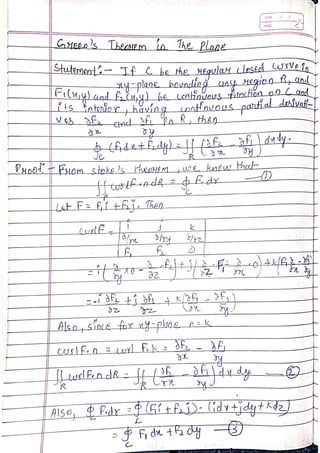 Green's Theorem in The Plane
Statement:- If C be the regular closed curve in
xy-plane bounding any region R, and
F₁(x,y) and F₂(x,y) be continuous function on C and
its interior, having continuous partial derivati-
ves ∂F₂/∂x and ∂F₁/∂y in R, then
∮_C (F₁dx + F₂dy) = ∬_R (∂F₂/∂x - ∂F₁/∂y) dx dy.
Proof:- From stoke's theorem, we know that
∬_R curl F·n dR = ∮_C F·dr —①
Let F = F₁i + F₂j. Then
curl F = | i j k |
| ∂/∂x ∂/∂y ∂/∂z |
| F₁ F₂ 0 |
= i(∂/∂y ×0 - ∂/∂z F₂) + j(∂/∂z F₁ - ∂/∂x ·0) + k(F₂ ∂/∂x - ∂/∂y F₁)
= -i ∂F₂/∂z + j ∂F₁/∂z + k(∂F₂/∂x - ∂F₁/∂y)
Also, since for xy-plane n=k
curl F·n = curl F·k = ∂F₂/∂x - ∂F₁/∂y
∬_R curl F·n dR = ∬_R (∂F₂/∂x - ∂F₁/∂y) dx dy —②
Also, ∮_C F·dr = ∮_C (F₁i + F₂j)·(idx + jdy + kdz)
= ∮_C F₁dx + F₂dy —③